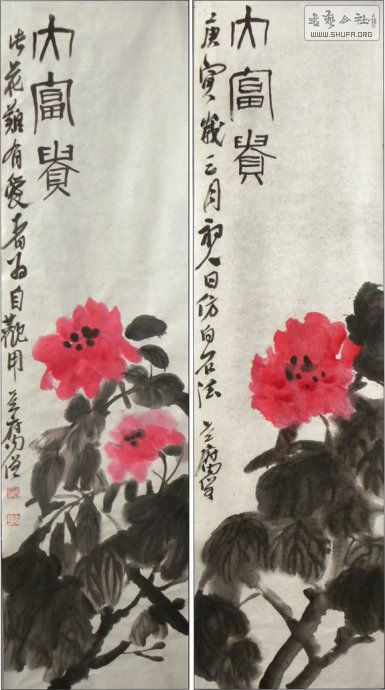 大富貴
此花難有愛者为自觀用
大富貴
庚寅歲三月初八日仿白石法
书艺公社
WWW.SHUFA.ORG